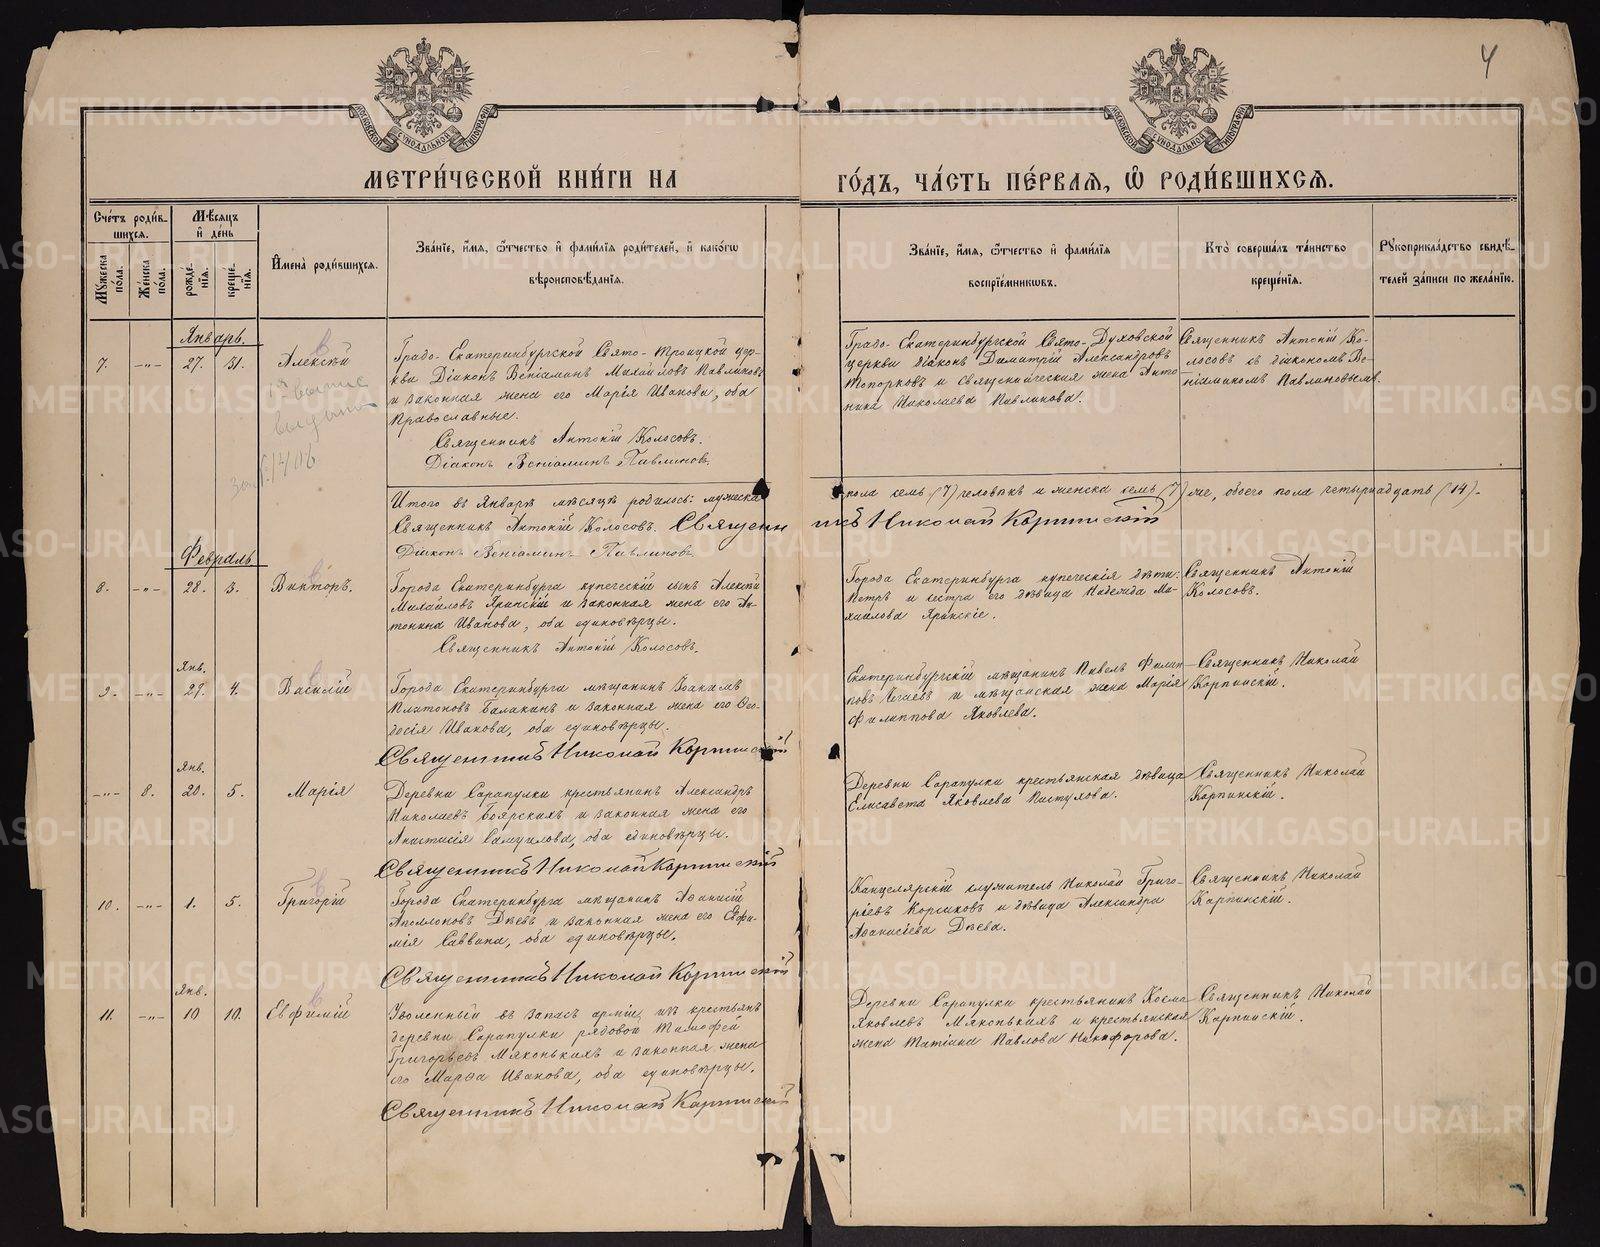 4
МОСКОВСКОЙ СУНОДАЛЬНОЙ ТИПОГРАФІИ
МОСКОВСКОЙ СУНОДАЛЬНОЙ ТИПОГРАФІИ
МЕТРИ́ЧЕСКОЙ КНИ́ГИ НА
ГО́ДЪ, ЧА́СТЬ ПЕ́РВАЯ, Ѡ РОДИ́ВШИХСЯ.
Сче́тъ роди́в-
шихся.
Му́жеска по́ла.
Же́нска по́ла.
Мѣ́сяцъ
и де́нь
рожде́-
нія.
креще́-
нія.
Имена̀ роди́вшихся.
Зва́ніе, и́мя, ѻ́тчество и фами́лія роди́телей, и како́гѡ
вѣроисповѣ́данія.
Зва́ніе, и́мя, ѻ́тчество и фами́лія
воспріе́мникѡвъ.
Кто̀ соверша́лъ та́инство
креще́нія.
Рукоприкла́дство свидѣ́-
телей за́писи по жела́нію.
Январь.
7. -„- 27. 31. Алексѣй
Градо-Екатеринбургской Свято-Троицкой цер-
кви Діаконъ Веніаминъ Михаиловъ Павлиновъ
и законная жена его Марія Иванова, оба
Православные.
Священникъ Антоній Колосовъ.
Діаконъ Веніаминъ Павлиновъ.
Градо-Екатеринбургской Свято-Духовской
церкви діаконъ Димитрій Александровъ
Топорковъ и священническая жена Анто-
нина Николаева Павлинова.
Священникъ Антоній Ко-
лосовъ съ діакономъ Ве-
ніаминомъ Павлиновымъ.
Итого въ Январѣ мѣсяцѣ родилось: мужеска
пола семь (7) человѣкъ и женска семь (7) же, обоего пола четырнадцать (14).
Священникъ Антоній Колосовъ. Священникъ Николай Карпинскій
Діаконъ Веніаминъ Павлиновъ
Февраль
8. -„- 28. 3. Викторъ.
Города Екатеринбурга купеческій сынъ Алексѣй
Михайловъ Яринскій и законная жена его Ан-
тонина Иванова, оба единовѣрцы.
Священникъ Антоній Колосовъ.
Города Екатеринбурга купеческія дѣти:
Петръ и сестра его дѣвица Надежда Ми-
хаилова Яринскіе.
Священникъ Антоній
Колосовъ.
Янв.
9. -„- 29. 4. Василій
Города Екатеринбурга мѣщанинъ Іоакимъ
Платоновъ Балакинъ и законная жена его Ѳео-
досія Иванова, оба единовѣрцы.
Священникъ Николай Карпинскій
Екатеринбургскій мѣщанинъ Павелъ Филип-
повъ и мѣщанская жена Марія
Филиппова Яковлева.
Священникъ Николай
Карпинскій.
Янв.
-„- 8. 20. 5. Марія
Деревни Сарапулки крестьянинъ Александръ
Николаевъ Боярскихъ и законная жена его
Анастасія Самуилова, оба единовѣрцы.
Священникъ Николай Карпинскій
Деревни Сарапулки крестьянская дѣвица
Елисавета Яковлева Пастухова.
Священникъ Николай
Карпинскій.
10. -„- 1. 5. Григорій
Города Екатеринбурга мѣщанинъ Аѳанасій
Аполлоновъ Дѣевъ и законная жена его Евфи-
мія Саввина, оба единовѣрцы.
Священникъ Николай Карпинскій
Канцелярскій служитель Николай Григо-
рьевъ Корсиковъ и дѣвица Александра
Аѳанасіева Дѣева.
Священникъ Николай
Карпинскій.
Янв.
11. -„- 10 10. Евфимій
Уволенный въ запасъ арміи, изъ крестьянъ
деревни Сарапулки рядовой Тимофей
Григорьевъ Мяконькихъ и законная жена
его Марѳа Иванова, оба единовѣрцы.
Священникъ Николай Карпинскій
Деревни Сарапулки крестьянинъ Косма
Яковлевъ Мяконькихъ и крестьянская
жена Татіана Павлова Никифорова.
Священникъ Николай
Карпинскій.
METRIKI.GASO-URAL.RU